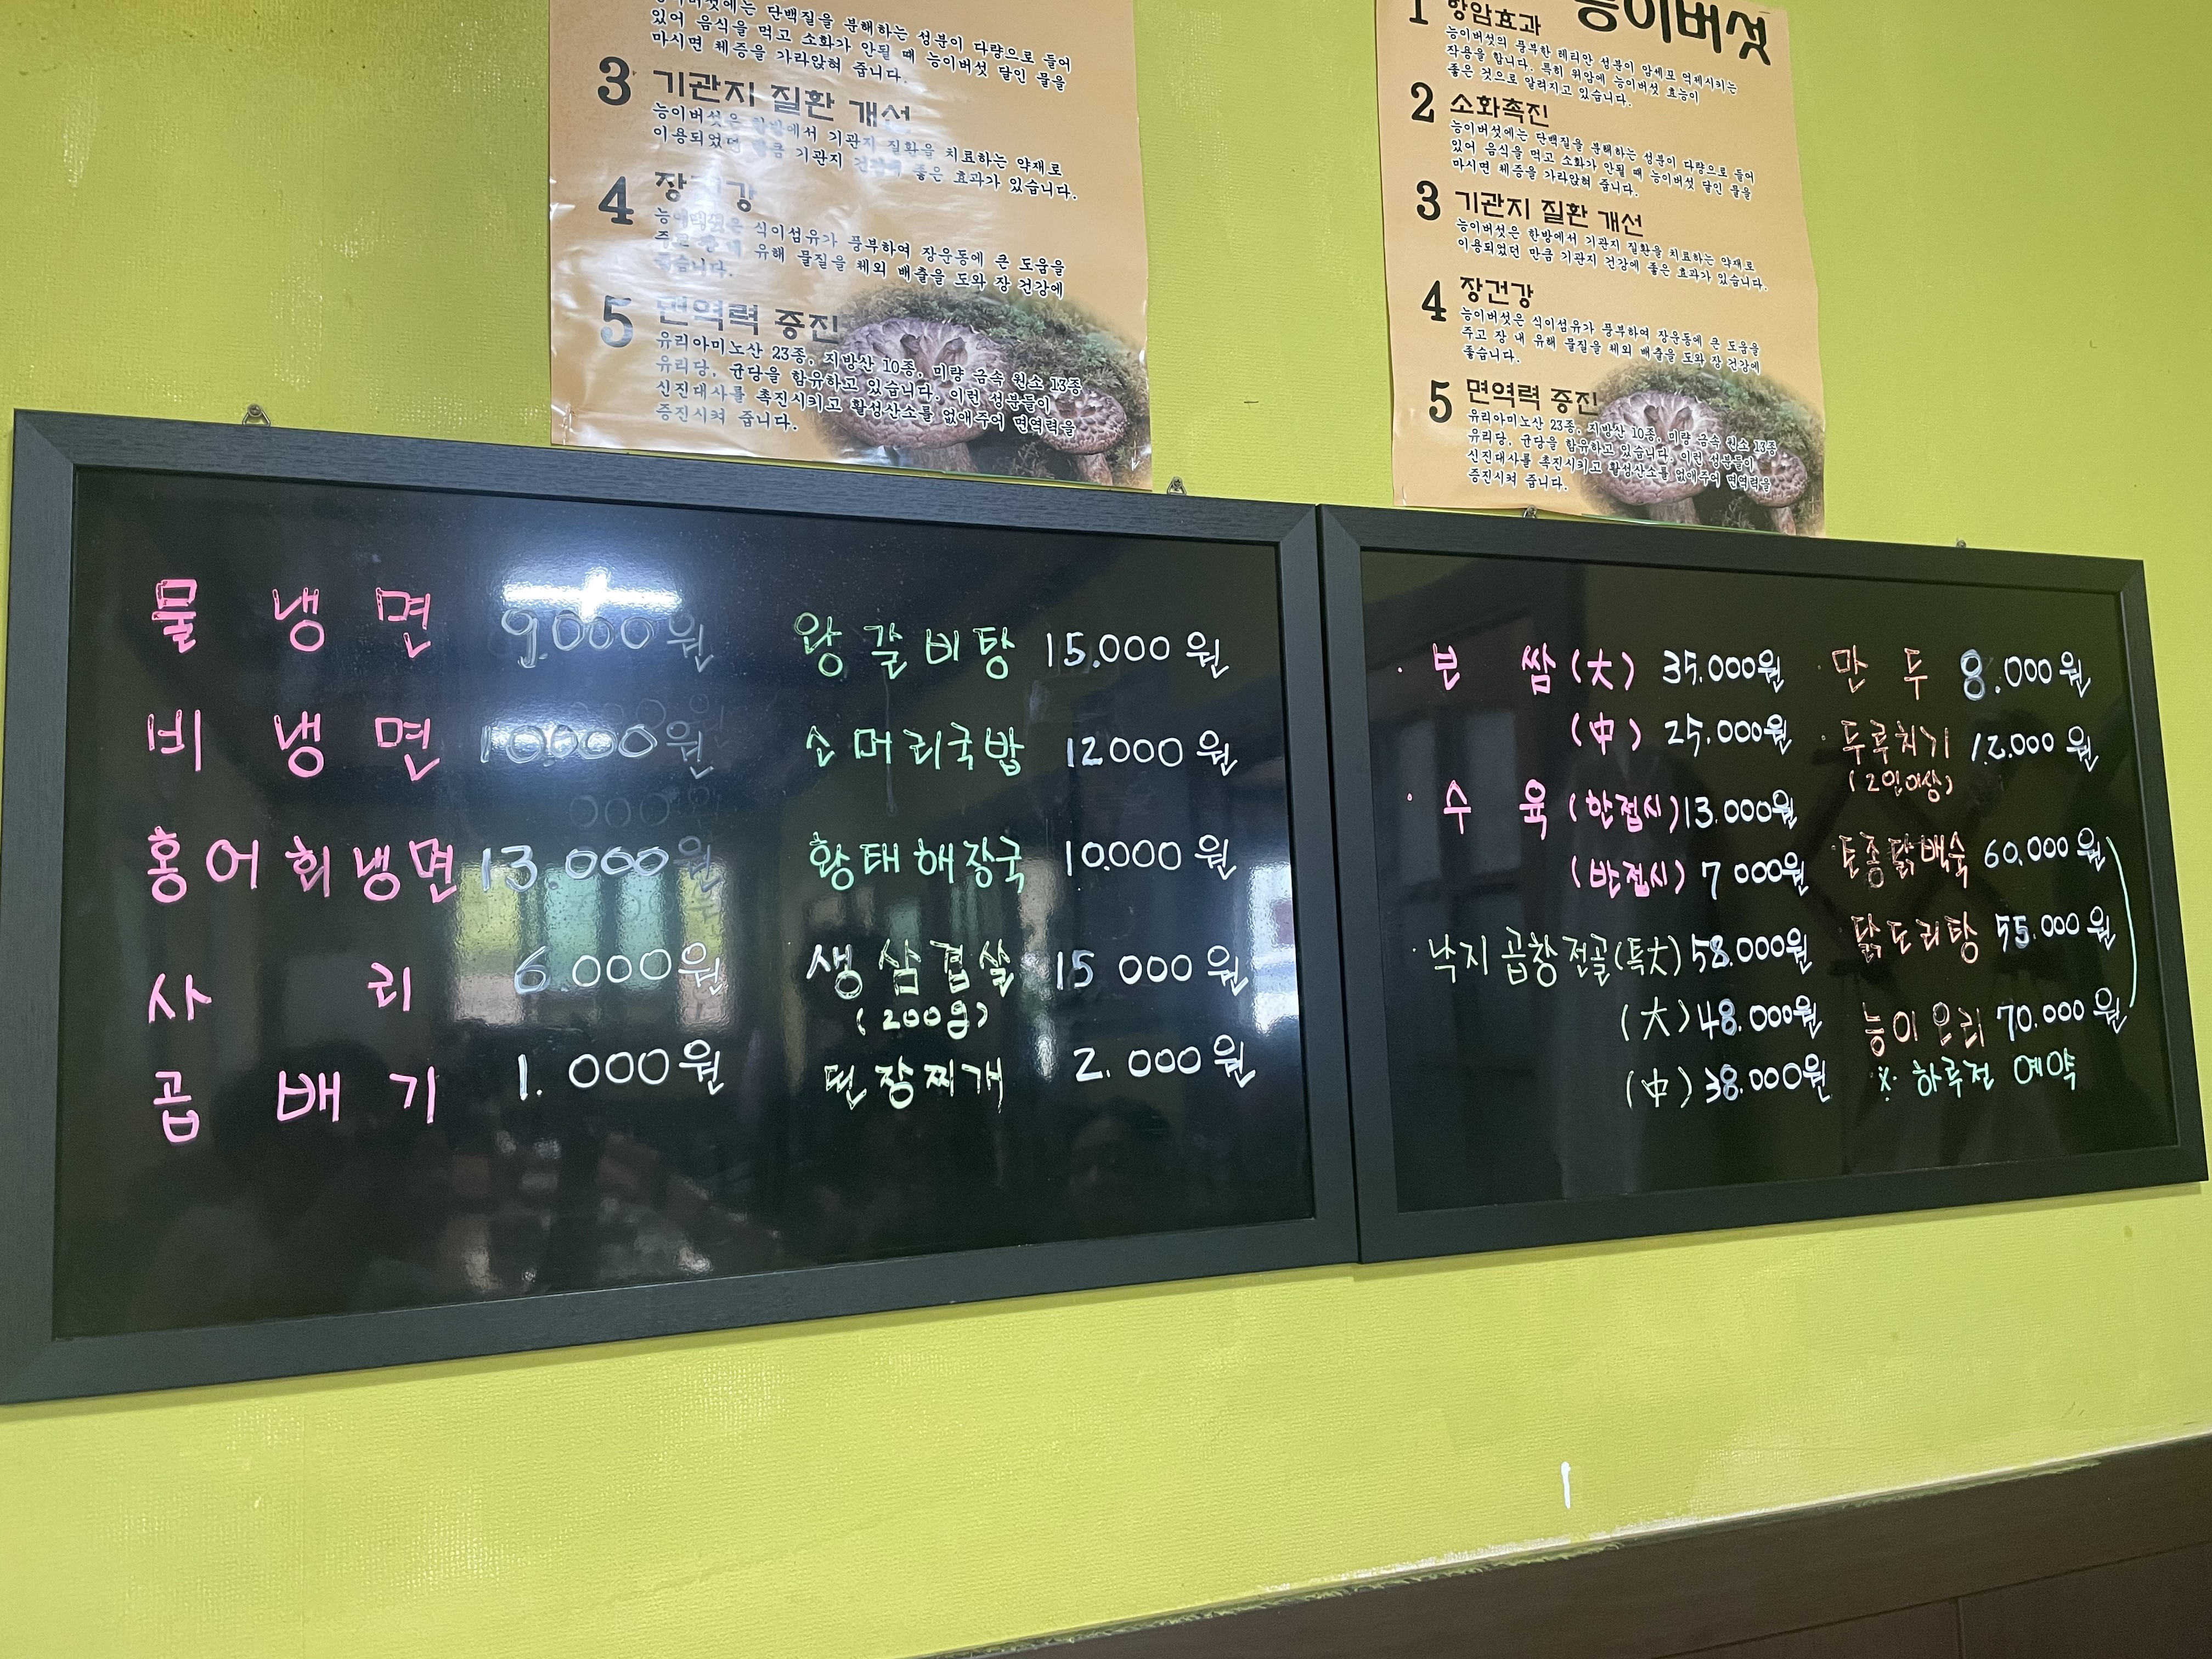 능이버섯에는 단백질을 분해하는 성분이 다량으로 들어
있어 음식을 먹고 소화가 안될 때 능이버섯 달인 물을
마시면 체증을 가라앉혀 줍니다.
3 기관지 질환 개선
능이버섯은 한방에서 기관지 질환을 치료하는 약재로
이용되었던 만큼 기관지 건강에 좋은 효과가 있습니다.
4 장건강
능이버섯은 식이섬유가 풍부하여 장운동에 큰 도움을
주고 장 내 유해 물질을 체외 배출을 도와 장 건강에
좋습니다.
5 면역력 증진
유리아미노산 23종, 지방산 10종, 미량 금속 원소 13종,
유리당, 균당을 함유하고 있습니다. 이런 성분들이
신진대사를 촉진시키고 활성산소를 없애주어 면역력을
증진시켜 줍니다.
능이버섯
1 항암효과
능이버섯의 풍부한 레티안 성분이 암세포 억제시키는
작용을 합니다. 특히 위암에 능이버섯 효능이
좋은 것으로 알려지고 있습니다.
2 소화촉진
능이버섯에는 단백질을 분해하는 성분이 다량으로 들어
있어 음식을 먹고 소화가 안될 때 능이버섯 달인 물을
마시면 체증을 가라앉혀 줍니다.
3 기관지 질환 개선
능이버섯은 한방에서 기관지 질환을 치료하는 약재로
이용되었던 만큼 기관지 건강에 좋은 효과가 있습니다.
4 장건강
능이버섯은 식이섬유가 풍부하여 장운동에 큰 도움을
주고 장 내 유해 물질을 체외 배출을 도와 장 건강에
좋습니다.
5 면역력 증진
유리아미노산 23종, 지방산 10종, 미량 금속 원소 13종
유리당, 균당을 함유하고 있습니다. 이런 성분들이
신진대사를 촉진시키고 활성산소를 없애주어 면역력을
증진시켜 줍니다.
물 냉 면 9.000원
비 냉 면 10.000원
홍어회냉면 13.000원
사 리 6.000원
곱 배 기 1.000원
왕갈비탕 15.000원
소머리국밥 12000원
황태해장국 10.000원
생삼겹살 15 000원
(200g)
된장찌개 2.000원
· 보 쌈(大) 35.000원
(中) 25.000원
· 수 육(한접시) 13.000원
(반접시) 7 000원
· 낙지 곱창 전골(특大) 58.000원
(大) 48.000원
(中) 38.000원
· 만 두 8.000원
· 두루치기 12.000원
(2인이상)
· 토종닭백숙 60.000원
닭도리탕 55.000원
능이오리 70.000원
※ 하루전 예약